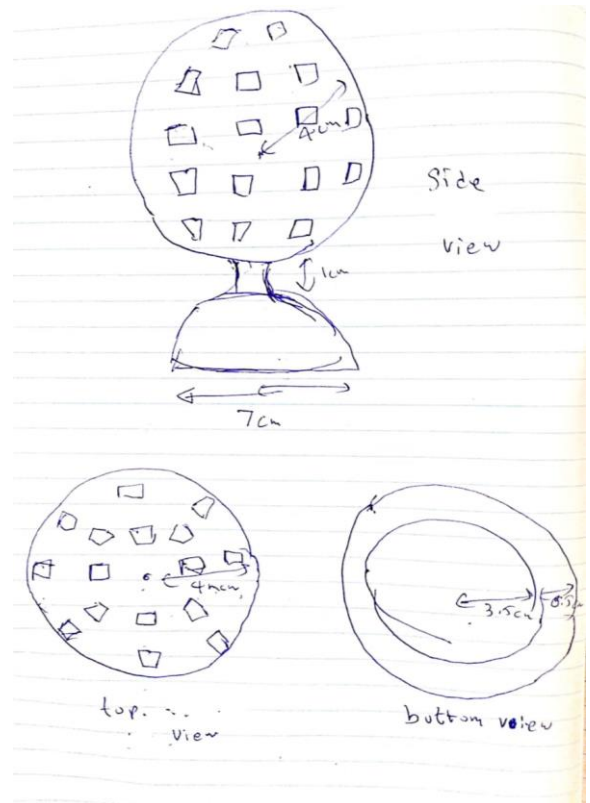 4cm
Side
view
1cm
7cm
4cm
3.5cm
0.5cm
top
view
buttom view